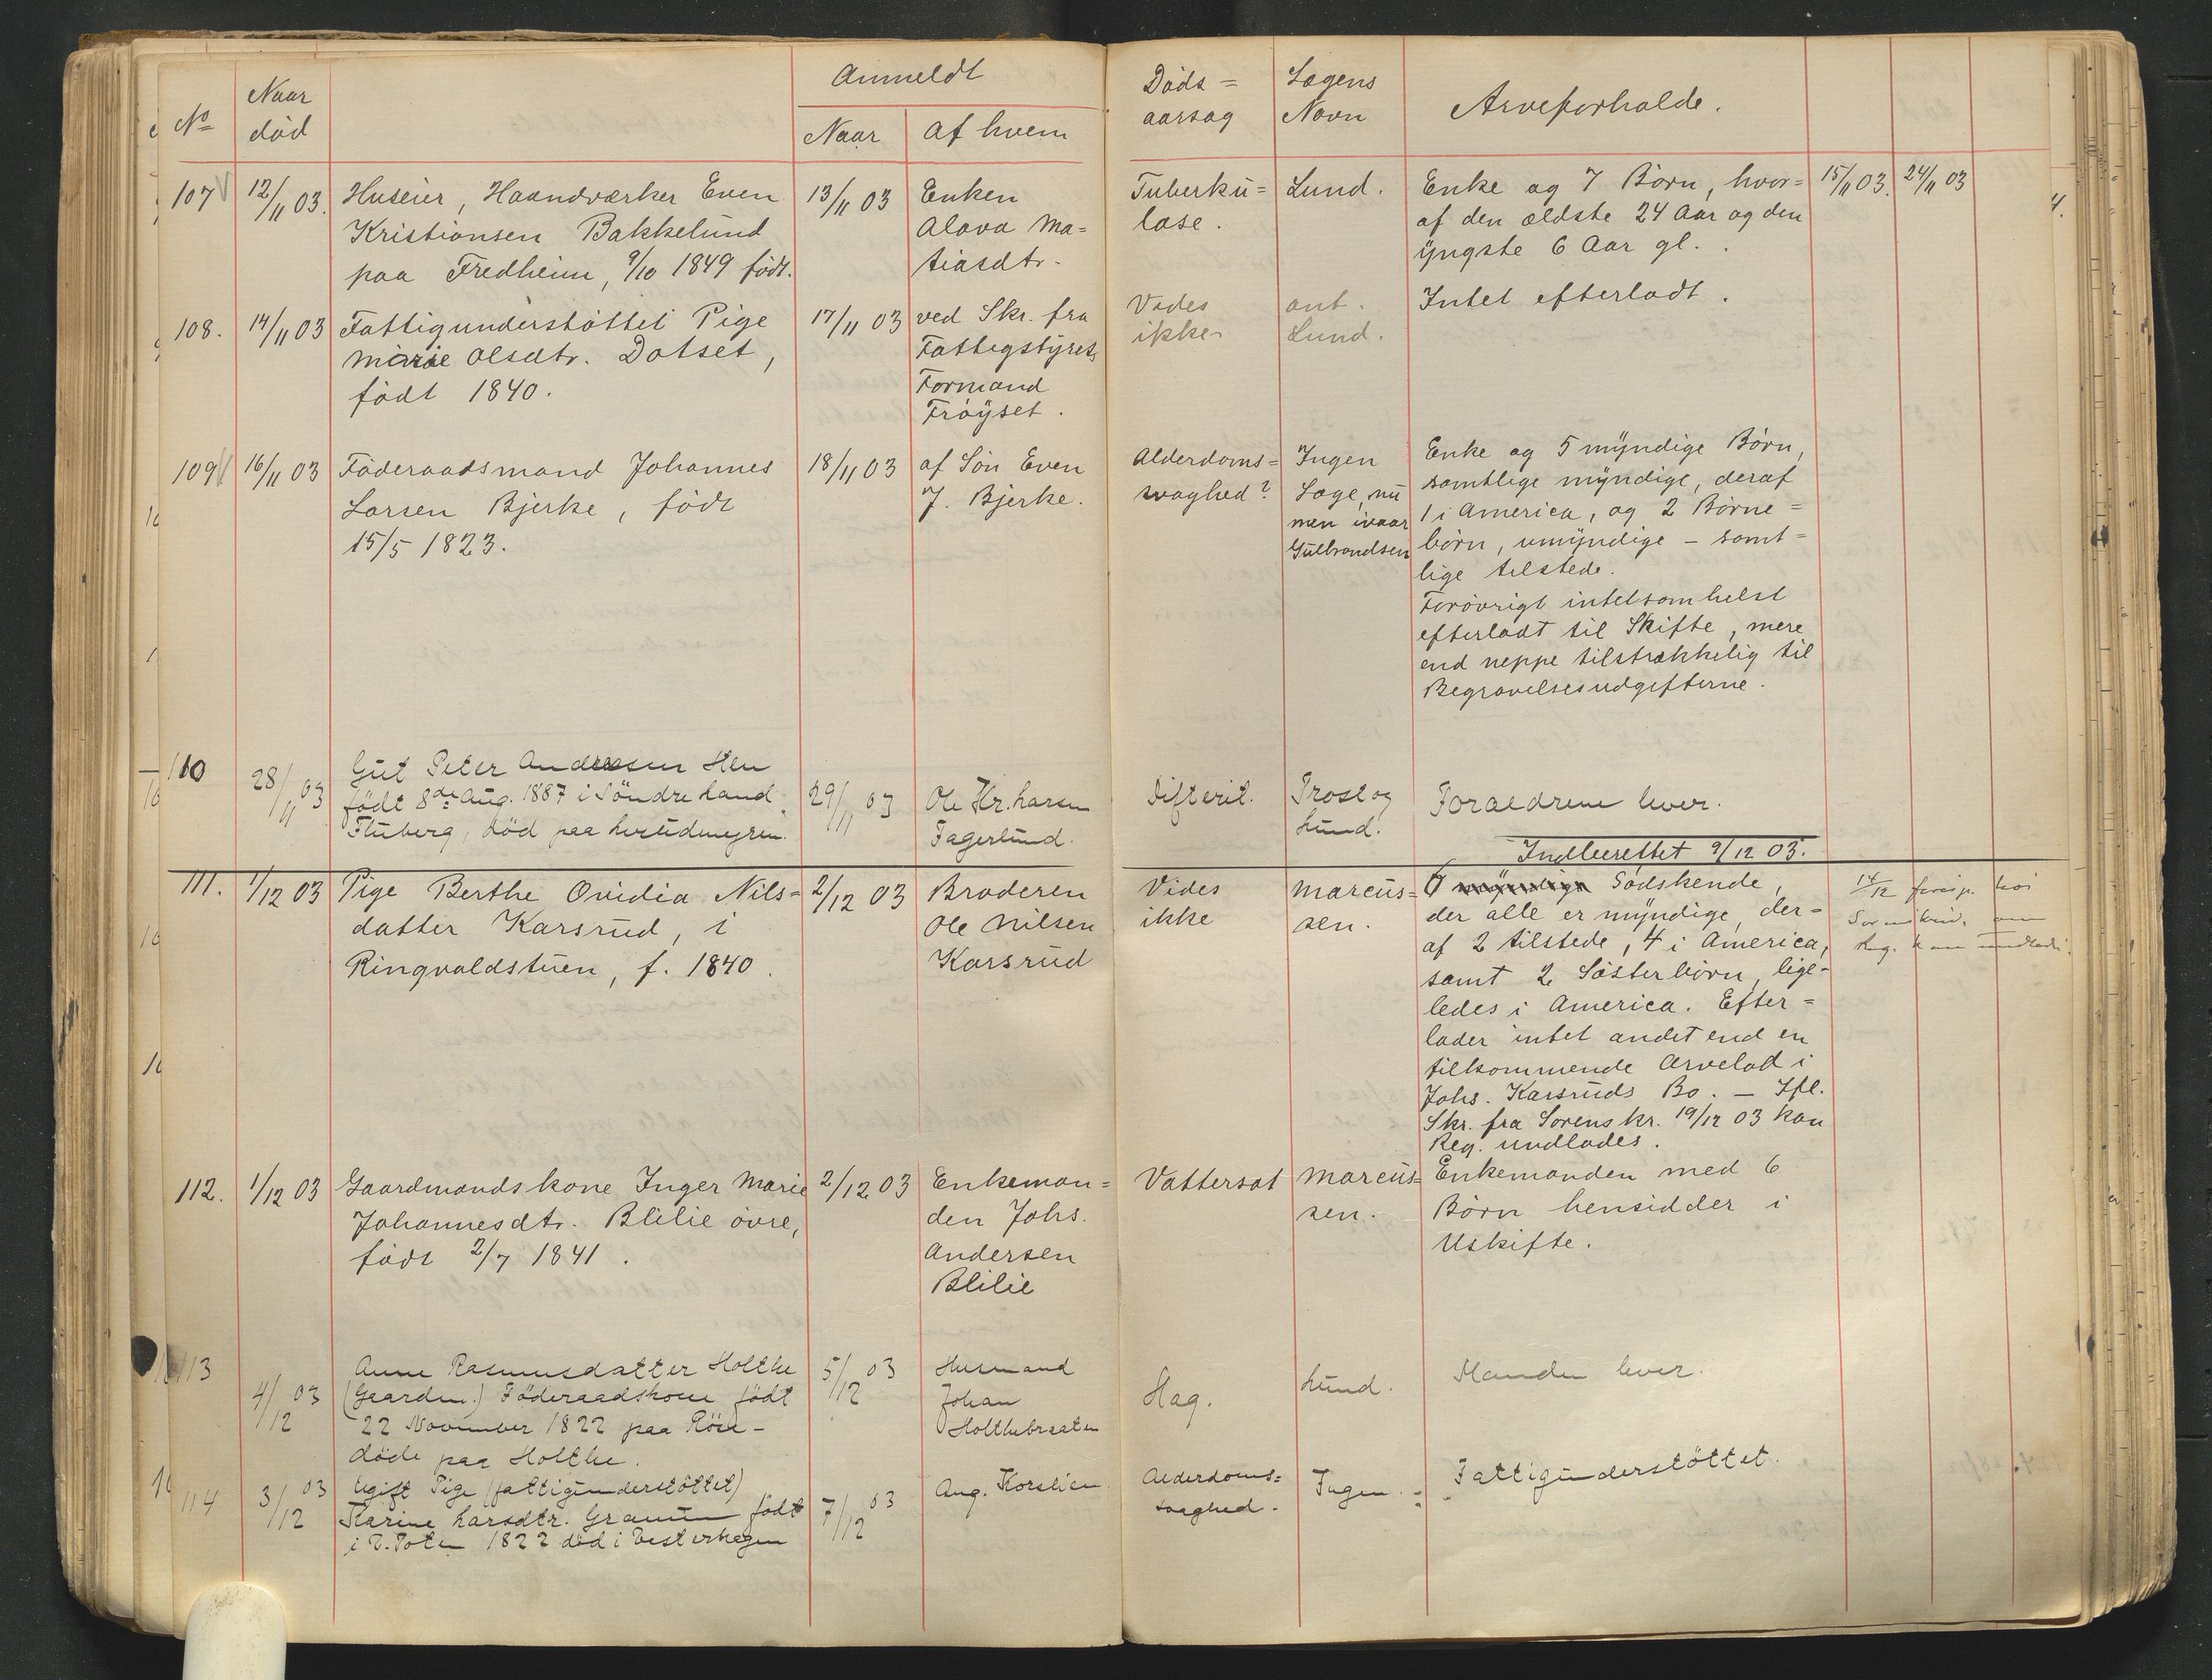 No
Naar
död
Anmeldt
Naar
Af hvem
Döds=
aarsag
Lægens
Navn
Arveforholde.
107
12/11 03.
Huseier, Haandværker Even
Kristiansen Bakkelund
paa Fredheim, 9/10 1849 født.
13/11 03
Enken
Alava Ma=
tiasdtr.
Tuberku=
lose.
Lund.
Enke og 7 Börn, hvor=
af den ældste 24 Aar og den
yngste 6 Aar gl.
15/11 03.
24/11 03
108.
14/11 03
Fattigunderstöttet Pige
Marie Olsdtr. Dotset,
födt 1840.
17/11 03
ved Skr. fra
Fattigstyrets
Formand
Fröyset.
Vides
ikke
ant.
Lund.
Intet efterladt.
109
16/11 03
Föderaadsmand Johannes
Larsen Bjerke, födt
15/5 1823.
18/11 03
af Sön Even
J. Bjerke.
Alderdoms=
svaghed?
Ingen
Læge, nu
men ivaar
Gulbrandsen
Enke og 5 myndige Börn,
samtlige myndige, deraf
1 i America, og 2 Börne=
börn, umyndige – samt=
lige tilstede.
Forövrigt intetsomhelst
efterladt til Skifte, mere
end neppe tilstrækkelig til
Begravelsesudgifterne.
110
28/11 03
Gut Peter Andreasen Hen
födt 8de Aug. 1887 i Söndre Land
Fluberg, död paa
29/11 03
Ole Kr. Larsen
Fagerlund.
Difterit.
Prost og
Lund.
Foraeldrene lever.
Indberettet 9/12 03.
111.
1/12 03
Pige Berthe Ovidia Nils=
datter Karsrud, i
Ringvoldstuen, f. 1840.
2/12 03
Broderen
Ole Nilsen
Karsrud
Vides
ikke
Marcus=
sen.
6 myndige Södskende,
der alle er myndige, der=
af 2 tilstede, 4 i America,
samt 2 Sösterbörn, lige=
ledes i America. Efter=
lader intet andet end en
tilkommende Arvelod i
Johs. Karsruds Bo. – Ifl.
Skr. fra Sorenskr. 19/12 03 kan
Reg. undlades.
14/12 foresp. hos
om
Reg. kan undlades.
112.
1/12 03
Gaardmandskone Inger Marie
Johannesdtr. Blilie övre,
födt 2/7 1841.
2/12 03
Enkeman=
den Johs.
Andersen
Blilie
Vattersot
Marcus=
sen.
Enkemanden med 6
Börn hensidder i
Uskifte.
113
4/12 03
Anne Rasmusdatter Holthe
(Gaardm.) Föderaadskone födt
22 November 1822 paa
döde paa Holthe.
5/12 03
Husmand
Johan
Holthebraaten
Slag.
Lund.
Manden lever.
114
3/12 03
Ugift Pige (fattigunderstöttet)
Karine Larsdtr. født
i V. Toten 1822 död i
7/12 03
Aug. Korslien
Alderdoms=
svaghed.
Ingen.
Fattigunderstöttet.